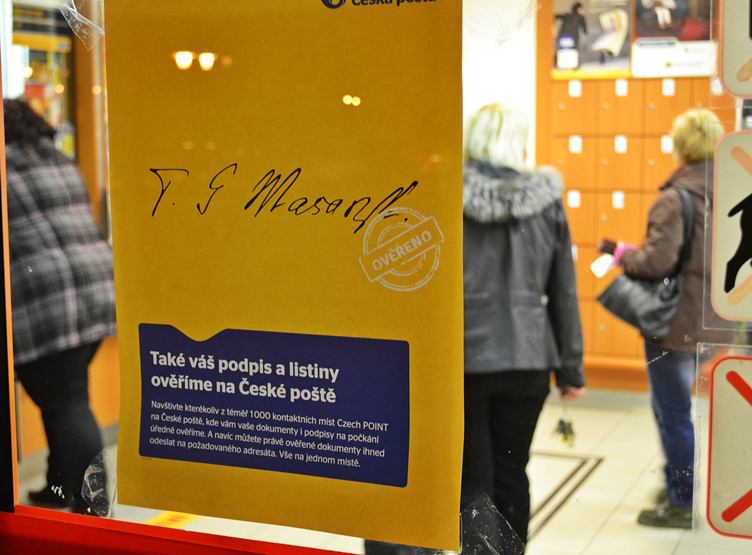 Česká pošta
T. G Masaryk.
OVĚŘENO
Také váš podpis a listiny
ověříme na České poště
Navštivte kterékoliv z téměř 1000 kontaktních míst Czech POINT
na České poště, kde vám vaše dokumenty i podpisy na počkání
úředně ověříme. A navíc můžete právě ověřené dokumenty ihned
odeslat na požadovaného adresáta. Vše na jednom místě.